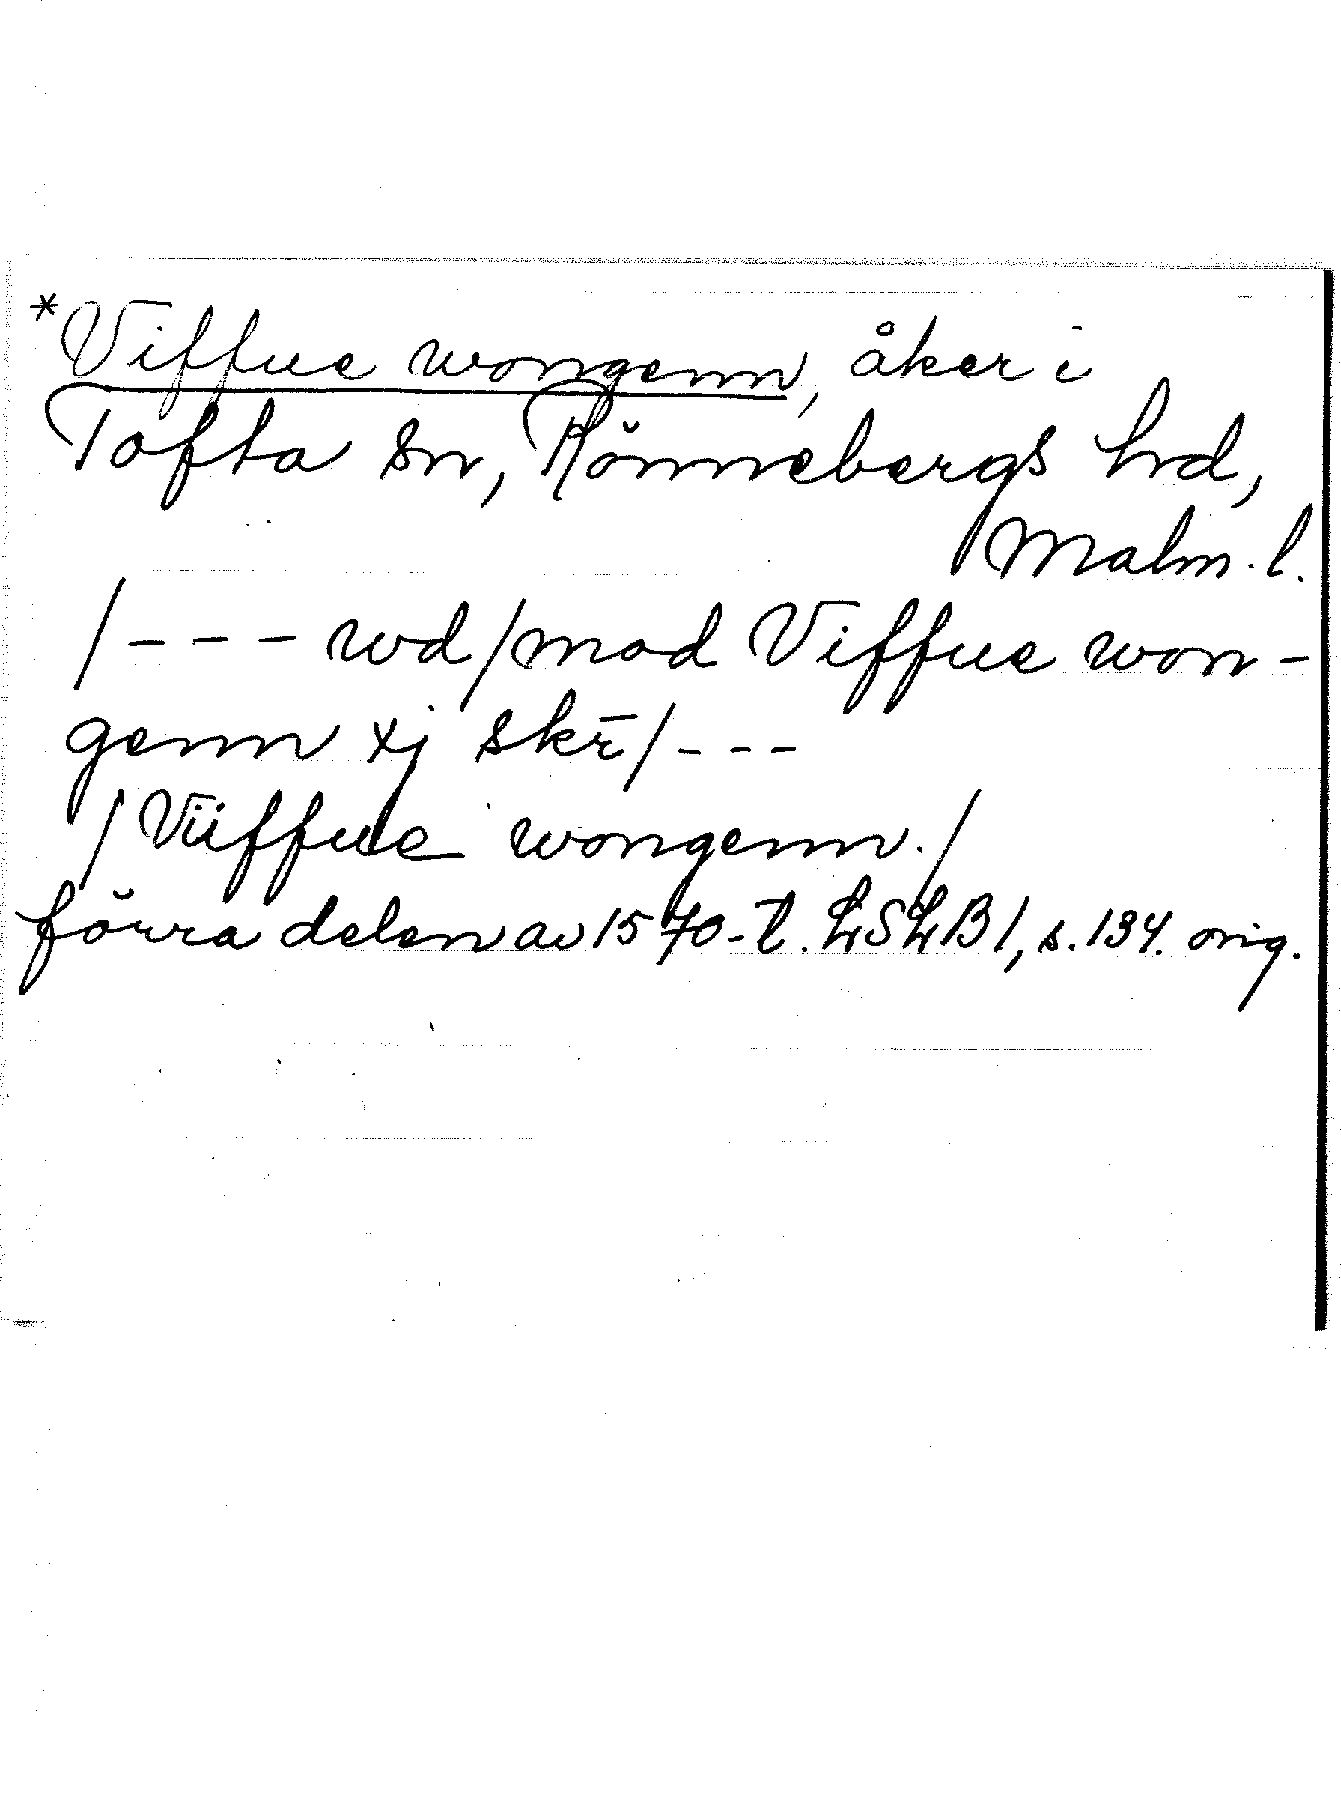 *Viffue wongenn, åker i
Tofta sn, Rönnebergs hd,
Malm. l.
/--- wd/mod Viffue won-
genn xj skr̄/---
/Viiffue wongenn./
förra delen av 1570-t. LSLB 1, s. 134. orig.